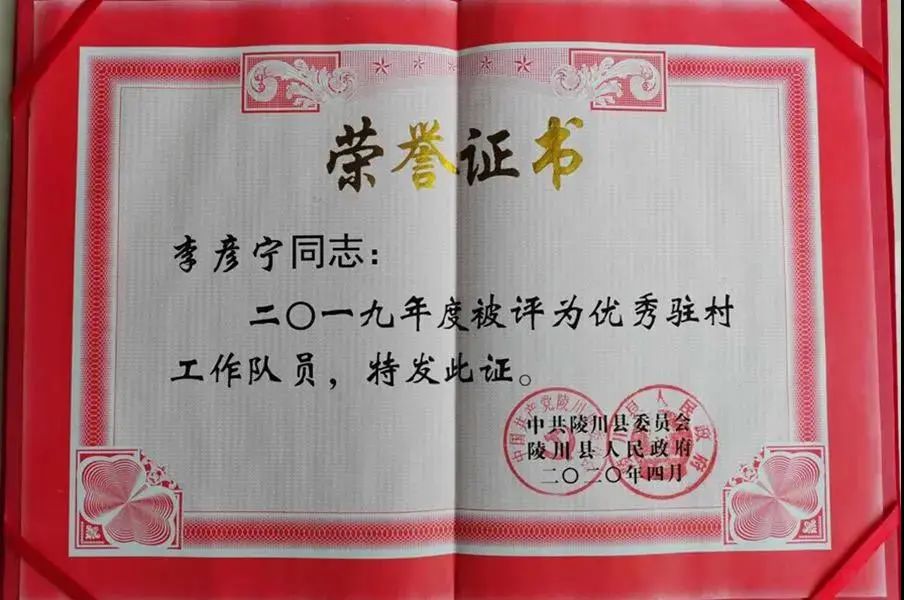 荣誉证书
李彦宁同志：
二〇一九年度被评为优秀驻村
工作队员，特发此证。
中共陵川县委员会
陵川县人民政府
二〇二〇年四月